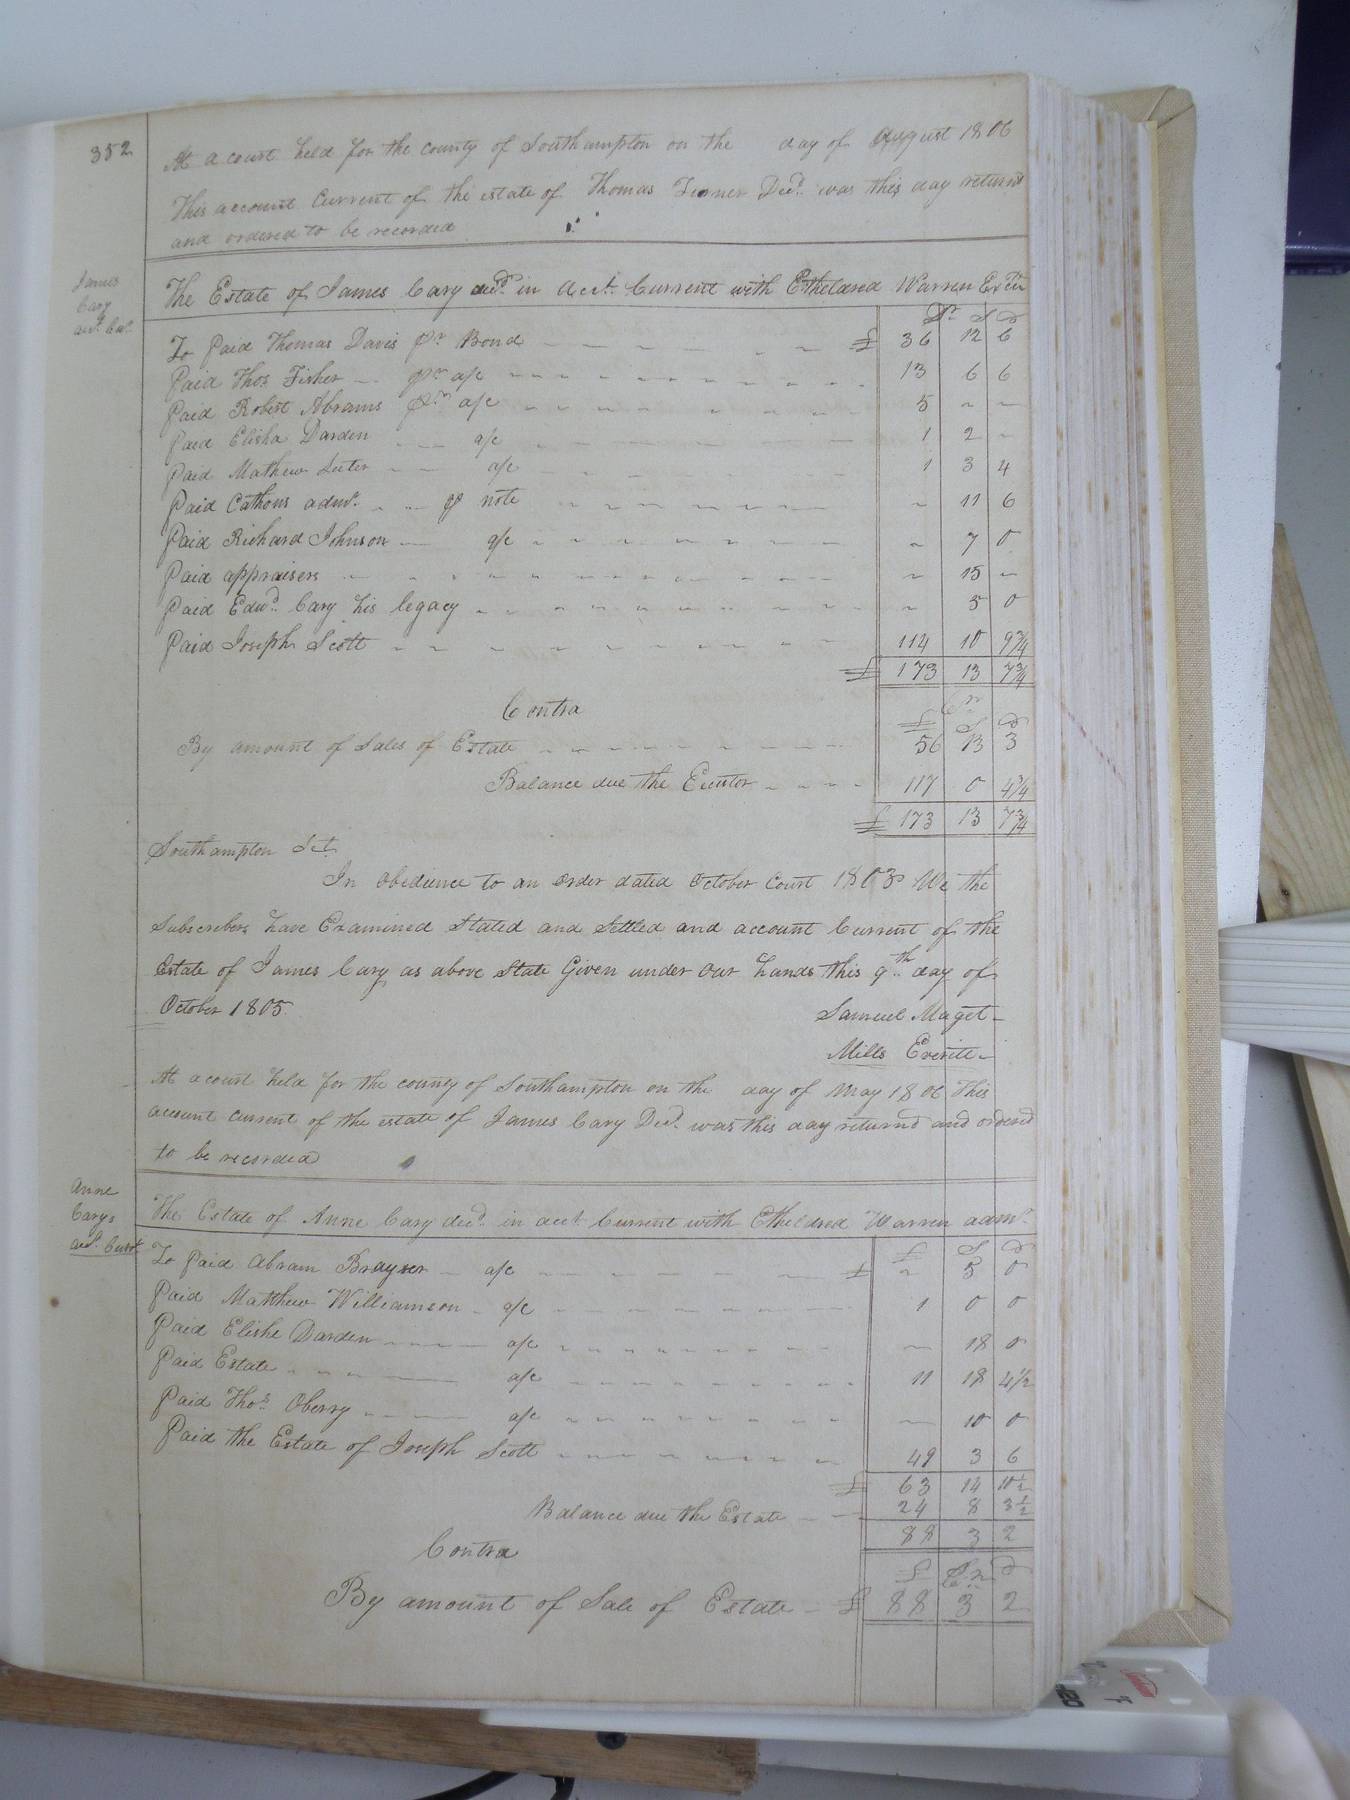 352
At a court held for the county of Southampton on the day of August 1806
This account Current of the estate of Thomas Turner Decd. was this day returnd
and ordered to be recorded
James
Cary
acct. Curt.
The Estate of James Cary decd. in Acct. Current with Etheldred Warren Exctr
Dr S D
To paid Thomas Davis pr Bond £ 36 12 6
Paid Thos Fisher pr a/c 13 6 6
Paid Robert Abrams pr a/c 5 ~ ~
Paid Elisha Darden a/c 1 2 ~
Paid Mathew Luter a/c 1 3 4
Paid Cathons admr. p note ~ 11 6
Paid Richard Johnson a/c ~ 7 0
Paid appraisers ~ 15 ~
Paid Edwd. Cary his legacy ~ 5 0
Paid Joseph Scott 114 10 9 3/4
£ 173 13 7 3/4
Contra Cr
£ S D
By amount of Sales of Estate 56 13 3
Balance due the Exutor 117 0 4 3/4
£ 173 13 7 3/4
Southampton Sct.
In Obedience to an order dated October Court 1803 We the
Subscribers have Examined Stated and Settled and account Current of the
Estate of James Cary as above State Given under our hands this 9th day of
October 1805. Samuel Maget
Mills Everitt
At a court held for the county of Southampton on the day of May 1806 This
account current of the estate of James Cary Decd. was this day returnd and ordered
to be recorded
Anne
Carys
acct. Curt
The Estate of Anne Cary decd. in acct Current with Etheldred Warren admr.
£ S D
To Paid Abram Brayser a/c £ ~ 5 0
Paid Matthew Williamson a/c 1 0 0
Paid Elishe Darden a/c ~ 18 0
Paid Estate a/c 11 18 4 1/2
Paid Thos. Oberry a/c ~ 10 0
Paid the Estate of Joseph Scott 49 3 6
£ 63 14 10 1/2
Balance due the Estate 24 8 3 1/2
88 3 2
Contra
£ Cr D
By amount of Sale of Estate £ 88 3 2